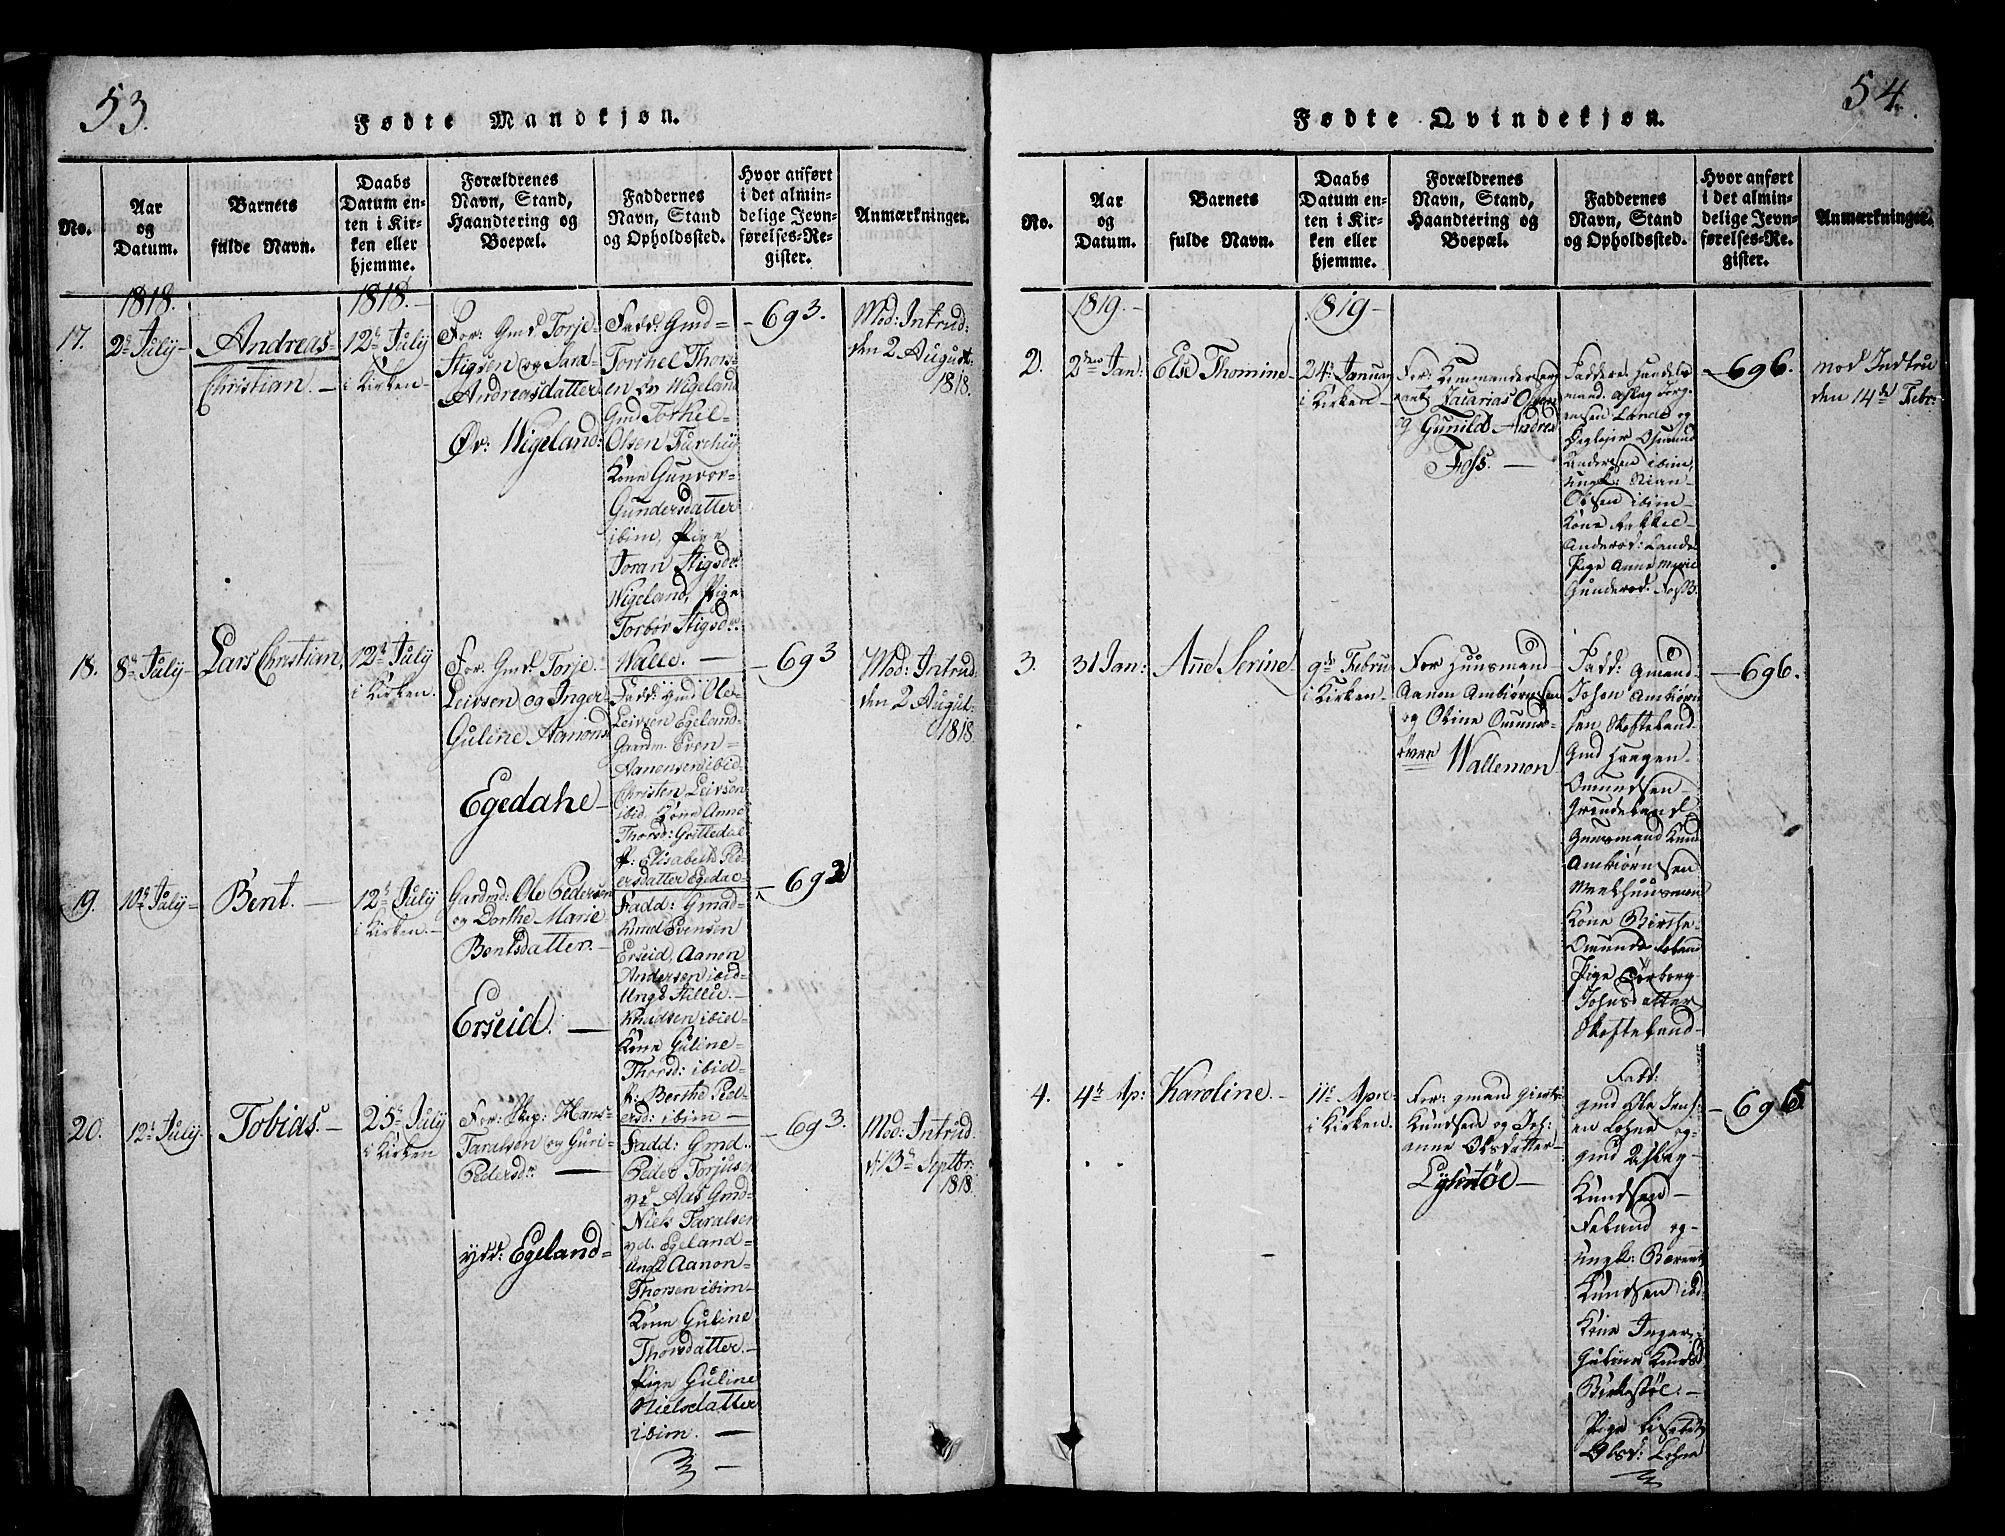 53.
Fødte Mandkjøn.
No.
Aar
og
Datum.
Barnets
fulde Navn.
Daabs
Datum en-
ten i Kir-
ken eller
hjemme.
Forældrenes
Navn, Stand,
Haandtering og
Boepæl.
Faddernes
Navn, Stand
og Opholdssted.
Hvor anført
i det almin-
delige Jevn-
førelses-Re-
gister.
Anmærkninger.
1818.
1818.
17.
2d July
Andreas
Christian.
12d July
i Kirken
For: Gmd Torje
Stigsen og Sara
Andreasdatter
Øv: Wigeland.
Fadd: Gmd
Torkel Thors-
en Øv Wigeland
Gmd Torkel
Olsen
Kone Gunvor
Gundersdatter
ibim, Pige
Joran Stigsdr
Wigeland, Pige
Torbor Stigsdr
Walle.
693.
Mod: Intrud:
den 2 August
1818.
18.
8d July
Lars Christian,
12d July
i Kirken.
For: Gmd Torje
Leivsen og Inger
Guline Aanonsd
Egedahe
Fadd: gmd Ole
Leivsen Egeland
Gaardm. Even
Aanonsen ibid
Christen Leivsen
ibid. Kone Anne
Thorsd: Gottledal
P: Elisabeth Ped-
ersdatter Egeda
693
Mod: Intrud:
den 2 August
1818.
19.
10d July
Bent.
12d July
i Kirken.
Gardmd: Ole Pedersen
og Dorthe Marie
Bentsdatter.
Erseid.
Fadd: Gmd
Knud Evensen
Erseid, Aanon
Andersen ibid
Ungk
Knudsen ibid
Kone Guline
Thorsd: ibid
P: Berthe Ped-
ersd: ibim
693
20.
12d July
Tobias.
25d July
i Kirken
For: Skp: Hans
Taralsen og Guri
Pedersdr
ydd: Egeland
Fadd: Gmd.
Peder Torjusen
yd Aas Gmd
Niels Taralsen
yd. Egeland
Ungk Aanon
Thorsen ibim
Kone Guline
Thorsdatter.
Pige Guline
Nielsdatter
ibim.
693.
Mod: Intrud.
d 13d Septbr:
1818.
54.
Fødte Qvindekjøn.
No.
Aar
og
Datum.
Barnets
fulde Navn.
Daabs
Datum en-
ten i Kir-
ken eller
hjemme.
Forældrenes
Navn, Stand,
Haandtering og
Boepæl.
Faddernes
Navn, Stand
og Opholdssted.
Hvor anført
i det almin-
delige Jevn-
førelses-Re-
gister.
Anmærkninger.
1819.
1819
2.
2den Jan:
Else Thomine
24d Januar
i Kirken
For: Commandersergeant
Zacarias Olsen
og Gunild Andrea
Foss.
Faddere handels
mand Aslag Jørg-
ensen Lande og
Osmund
Andersen ibim,
Ungk:
Olsen ibim
Kone Rakkel
Andersd: Lande
Pige Anne Marie
Gundersd. Foss.
696.
mod Indtru
den 14d Febr:
3.
31 Jan:
Ane Serine
9d Febru
i Kirken
For Huusmand
Aanon Ambiørnsen
og Oline Omunds
øvre Wallemon
Fadd: Gmand
Johan Ambiørn
sen Skofteland
Gmd Haagen
Omundsen
Grundeland
Huusmand Knud
Ambiørnsen
Kone Birthe
Omundsd
Pige Torborg
Johnsdatter
Skofteland
696.
4.
4d Ap:
Karoline.
11d Apri
i Kirken.
For: gmand Giert
Knudsen og Joh:
anne Olsdatter
Lyhntøl
Fadd:
gmd Ole Jens-
en Lohne og
gmd Aslag
Knudsen
Faland og
Ungk: Berent
Knudsen ibd
Kone Inger
Guline Knudsd
Birkestøl.
Pige Lisebet
Olsd: Lohne
696